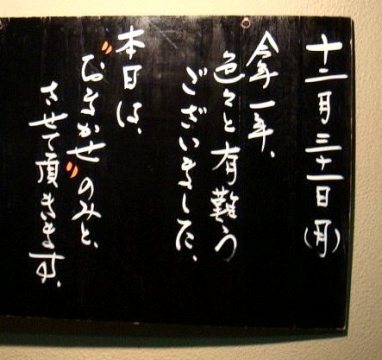 十二月三十一日(月)
今年一年、
色々と有難う
ございました、
本日は、
"おまかせ"のみと、
させて頂きます、